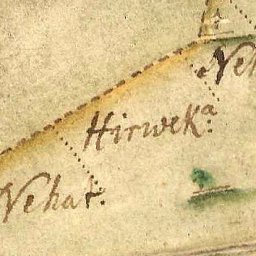 Neh
Hirwek.a
Nehar.